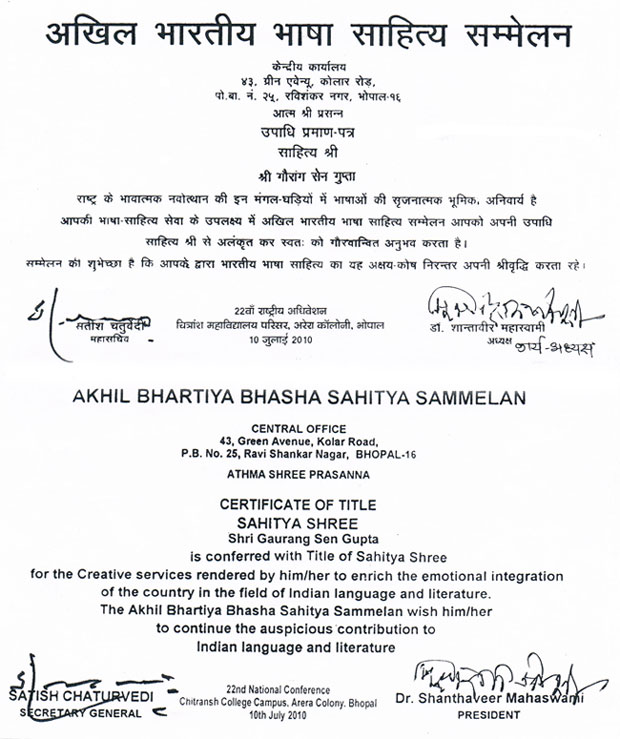 अखिल भारतीय भाषा साहित्य सम्मेलन
केन्द्रीय कार्यालय
४३, ग्रीन एवेन्यू, कोलार रोड़,
पो.बा. नं. २५, रविशंकर नगर, भोपाल-१६
आत्म श्री प्रसन्न
उपाधि प्रमाण-पत्र
साहित्य श्री
श्री गौरांग सेन गुप्ता
राष्ट्र के भावात्मक नवोत्थान की इन मंगल-घड़ियों में भाषाओं की सृजनात्मक भूमिक, अनिवार्य है
आपकी भाषा-साहित्य सेवा के उपलक्ष्य में अखिल भारतीय भाषा साहित्य सम्मेलन आपको अपनी उपाधि
साहित्य श्री से अलंकृत कर स्वतः को गौरवान्वित अनुभव करता है।
सम्मेलन की शुभेच्छा है कि आपके द्वारा भारतीय भाषा साहित्य का यह अक्षय-कोष निरन्तर अपनी श्रीवृद्धि करता रहे।
सतीश चतुर्वेदी
महासचिव
22वाँ राष्ट्रीय अधिवेशन
चित्रांश महाविद्यालय परिसर, अरेरा कॉलोनी, भोपाल
10 जुलाई 2010
डॉ. शान्तावीर महास्वामी
अध्यक्ष कार्य-अध्यक्ष
AKHIL BHARTIYA BHASHA SAHITYA SAMMELAN
CENTRAL OFFICE
43, Green Avenue, Kolar Road,
P.B. No. 25, Ravi Shankar Nagar, BHOPAL-16
ATHMA SHREE PRASANNA
CERTIFICATE OF TITLE
SAHITYA SHREE
Shri Gaurang Sen Gupta
is conferred with Title of Sahitya Shree
for the Creative services rendered by him/her to enrich the emotional integration
of the country in the field of Indian language and literature.
The Akhil Bhartiya Bhasha Sahitya Sammelan wish him/her
to continue the auspicious contribution to
Indian language and literature
SATISH CHATURVEDI
SECRETARY GENERAL
22nd National Conference
Chitransh College Campus, Arera Colony, Bhopal
10th July 2010
Dr. Shanthaveer Mahaswami
PRESIDENT